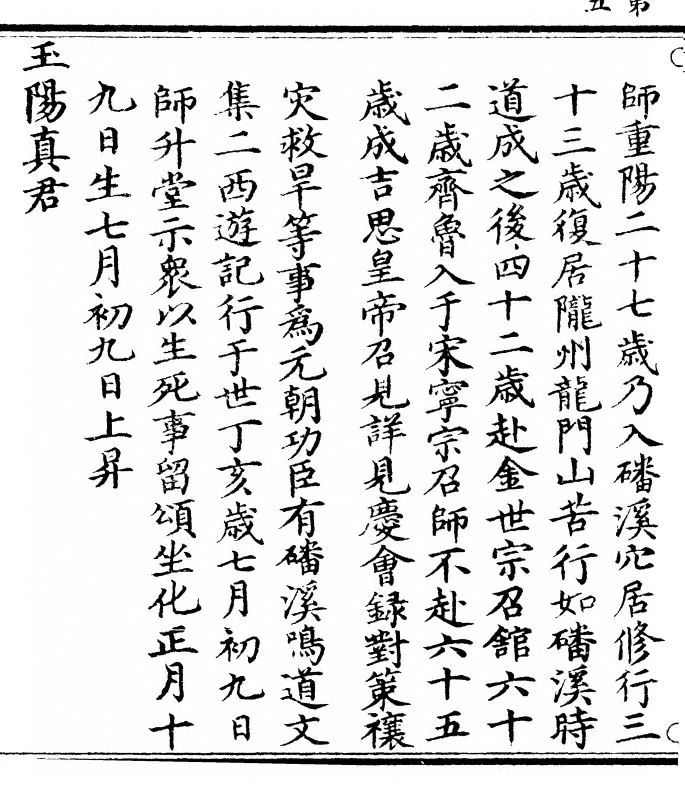 第五
師重陽二十七歲乃入磻溪穴居修行三
十三歲復居隴州龍門山苦行如磻溪時
道成之後四十二歲赴金世宗召舘六十
二歲齊魯入于宋寧宗召師不赴六十五
歲成吉思皇帝召見詳見慶會録對策禳
灾救旱等事爲元朝功臣有磻溪鳴道文
集二西遊記行于世丁亥歲七月初九日
師升堂示衆以生死事留頌坐化正月十
九日生七月初九日上昇
玉陽真君